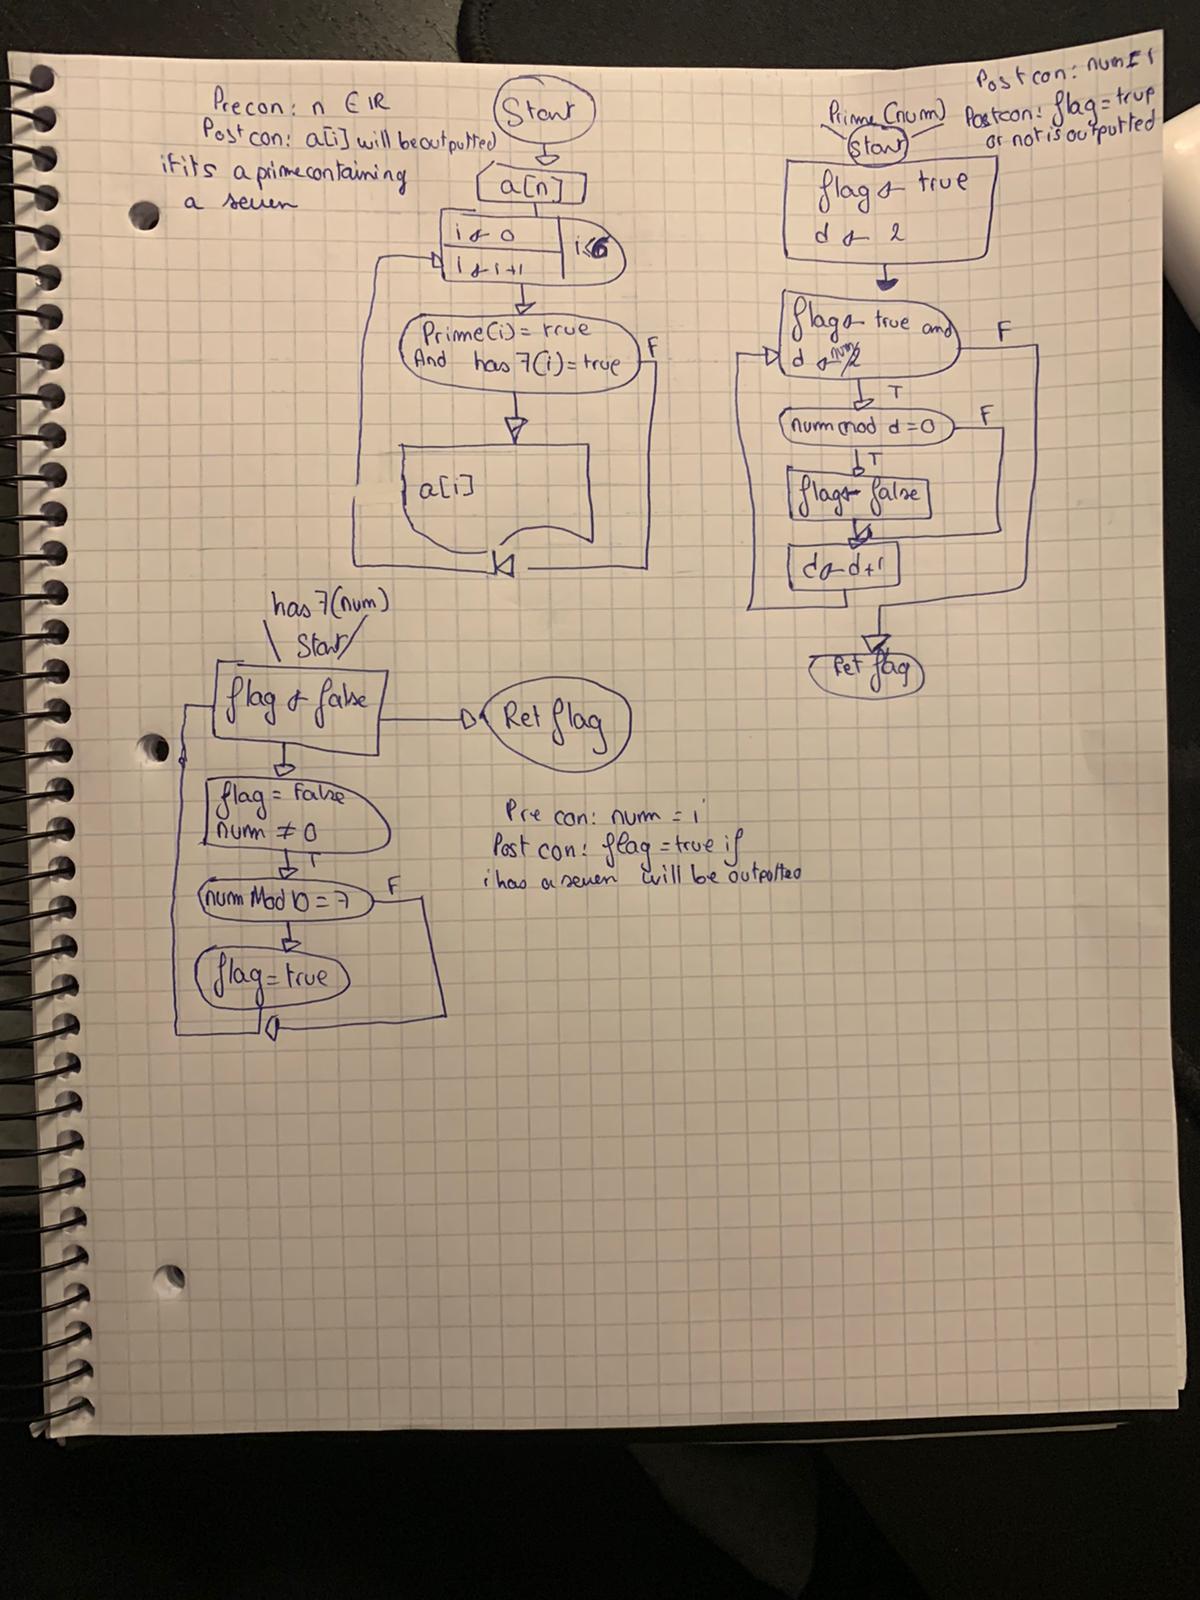 Precon: n ∈ IR
Post con: a[i] will be outputted
if its a prime containing
a seven
Start
a[n]
i ← 0
i ← i+1
i<6
Prime(i) = true
And has 7(i) = true
F
a[i]
Prime (num)
Start
Post con: num = i
Postcon: flag = true
or not is outputted
flag ← true
d ← 2
flag ← true and
d ← num/2
F
T
num mod d = 0
F
T
flag ← false
d ← d+1
Ret flag
has 7(num)
Start
flag ← false
Ret flag
flag = False
num ≠ 0
T
num Mod 10 = 7
F
flag = true
Pre con: num = i
Post con: flag = true if
i has a seven will be outputted